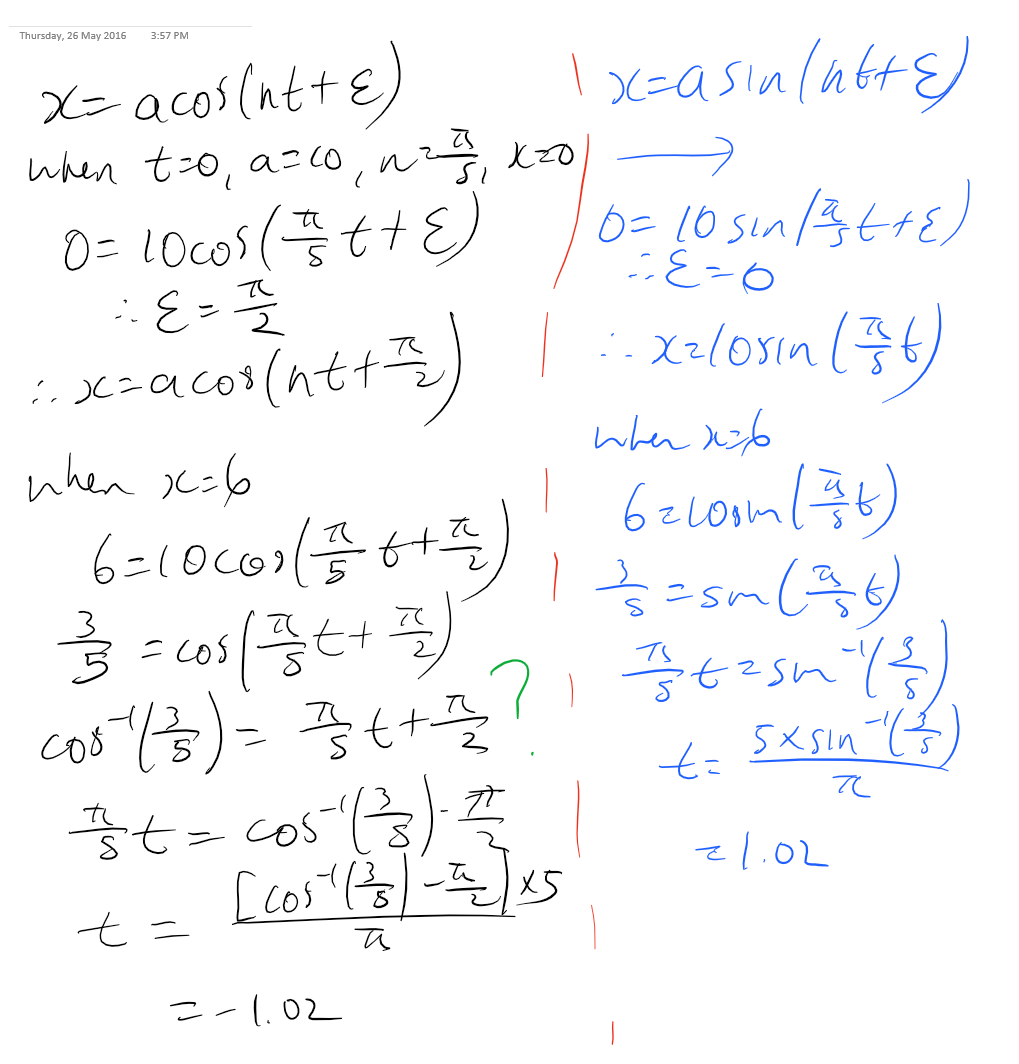 Thursday, 26 May 2016 3:57 PM
x = a cos(nt + ε)
when t=0, a=10, n=π/5, x=0
0 = 10 cos(π/5 t + ε)
∴ ε = π/2
∴ x = a cos(nt + π/2)
when x = 6
6 = 10 cos(π/5 t + π/2)
3/5 = cos(π/5 t + π/2)
cos⁻¹(3/5) = π/5 t + π/2 ?
π/5 t = cos⁻¹(3/5) - π/2
t = [cos⁻¹(3/5) - π/2] × 5 / π
= -1.02
x = a sin(nt + ε)
→
0 = 10 sin(π/5 t + ε)
∴ ε = 0
∴ x = 10 sin(π/5 t)
when x = 6
6 = 10 sin(π/5 t)
3/5 = sin(π/5 t)
π/5 t = sin⁻¹(3/5)
t = 5 × sin⁻¹(3/5) / π
= 1.02